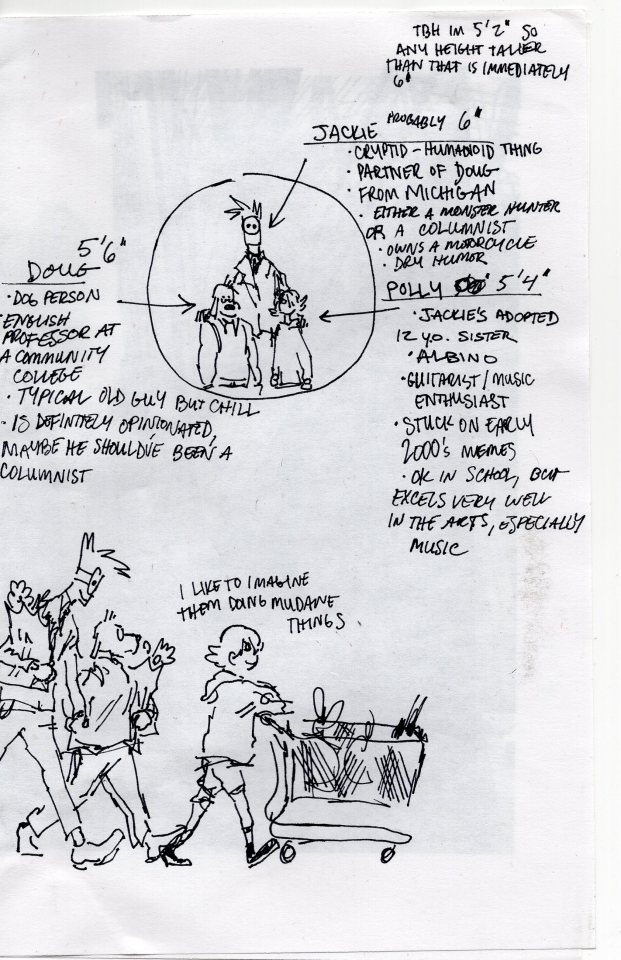 TBH IM 5'2" SO
ANY HEIGHT TALLER
THAN THAT IS IMMEDIATELY
6"
JACKIE PROBABLY 6"
· CRYPTID - HUMANOID THING
· PARTNER OF DOUG
· FROM MICHIGAN
· EITHER A MONSTER HUNTER
OR A COLUMNIST
· OWNS A MOTORCYCLE
· DRY HUMOR
5'6"
DOUG
· DOG PERSON
ENGLISH
PROFESSOR AT
A COMMUNITY
COLLEGE
· TYPICAL OLD GUY BUT CHILL
· IS DEFINTELY OPINIONATED,
MAYBE HE SHOULD'VE BEEN A
COLUMNIST
POLLY 5'4"
· JACKIE'S ADOPTED
12 Y.O. SISTER
· ALBINO
· GUITARIST/MUSIC
ENTHUSIAST
· STUCK ON EARLY
2000's MEMES
· OK IN SCHOOL, BUT
EXCELS VERY WELL
IN THE ARTS, ESPECIALLY
MUSIC
I LIKE TO IMAGINE
THEM DOING MUDANE
THINGS.